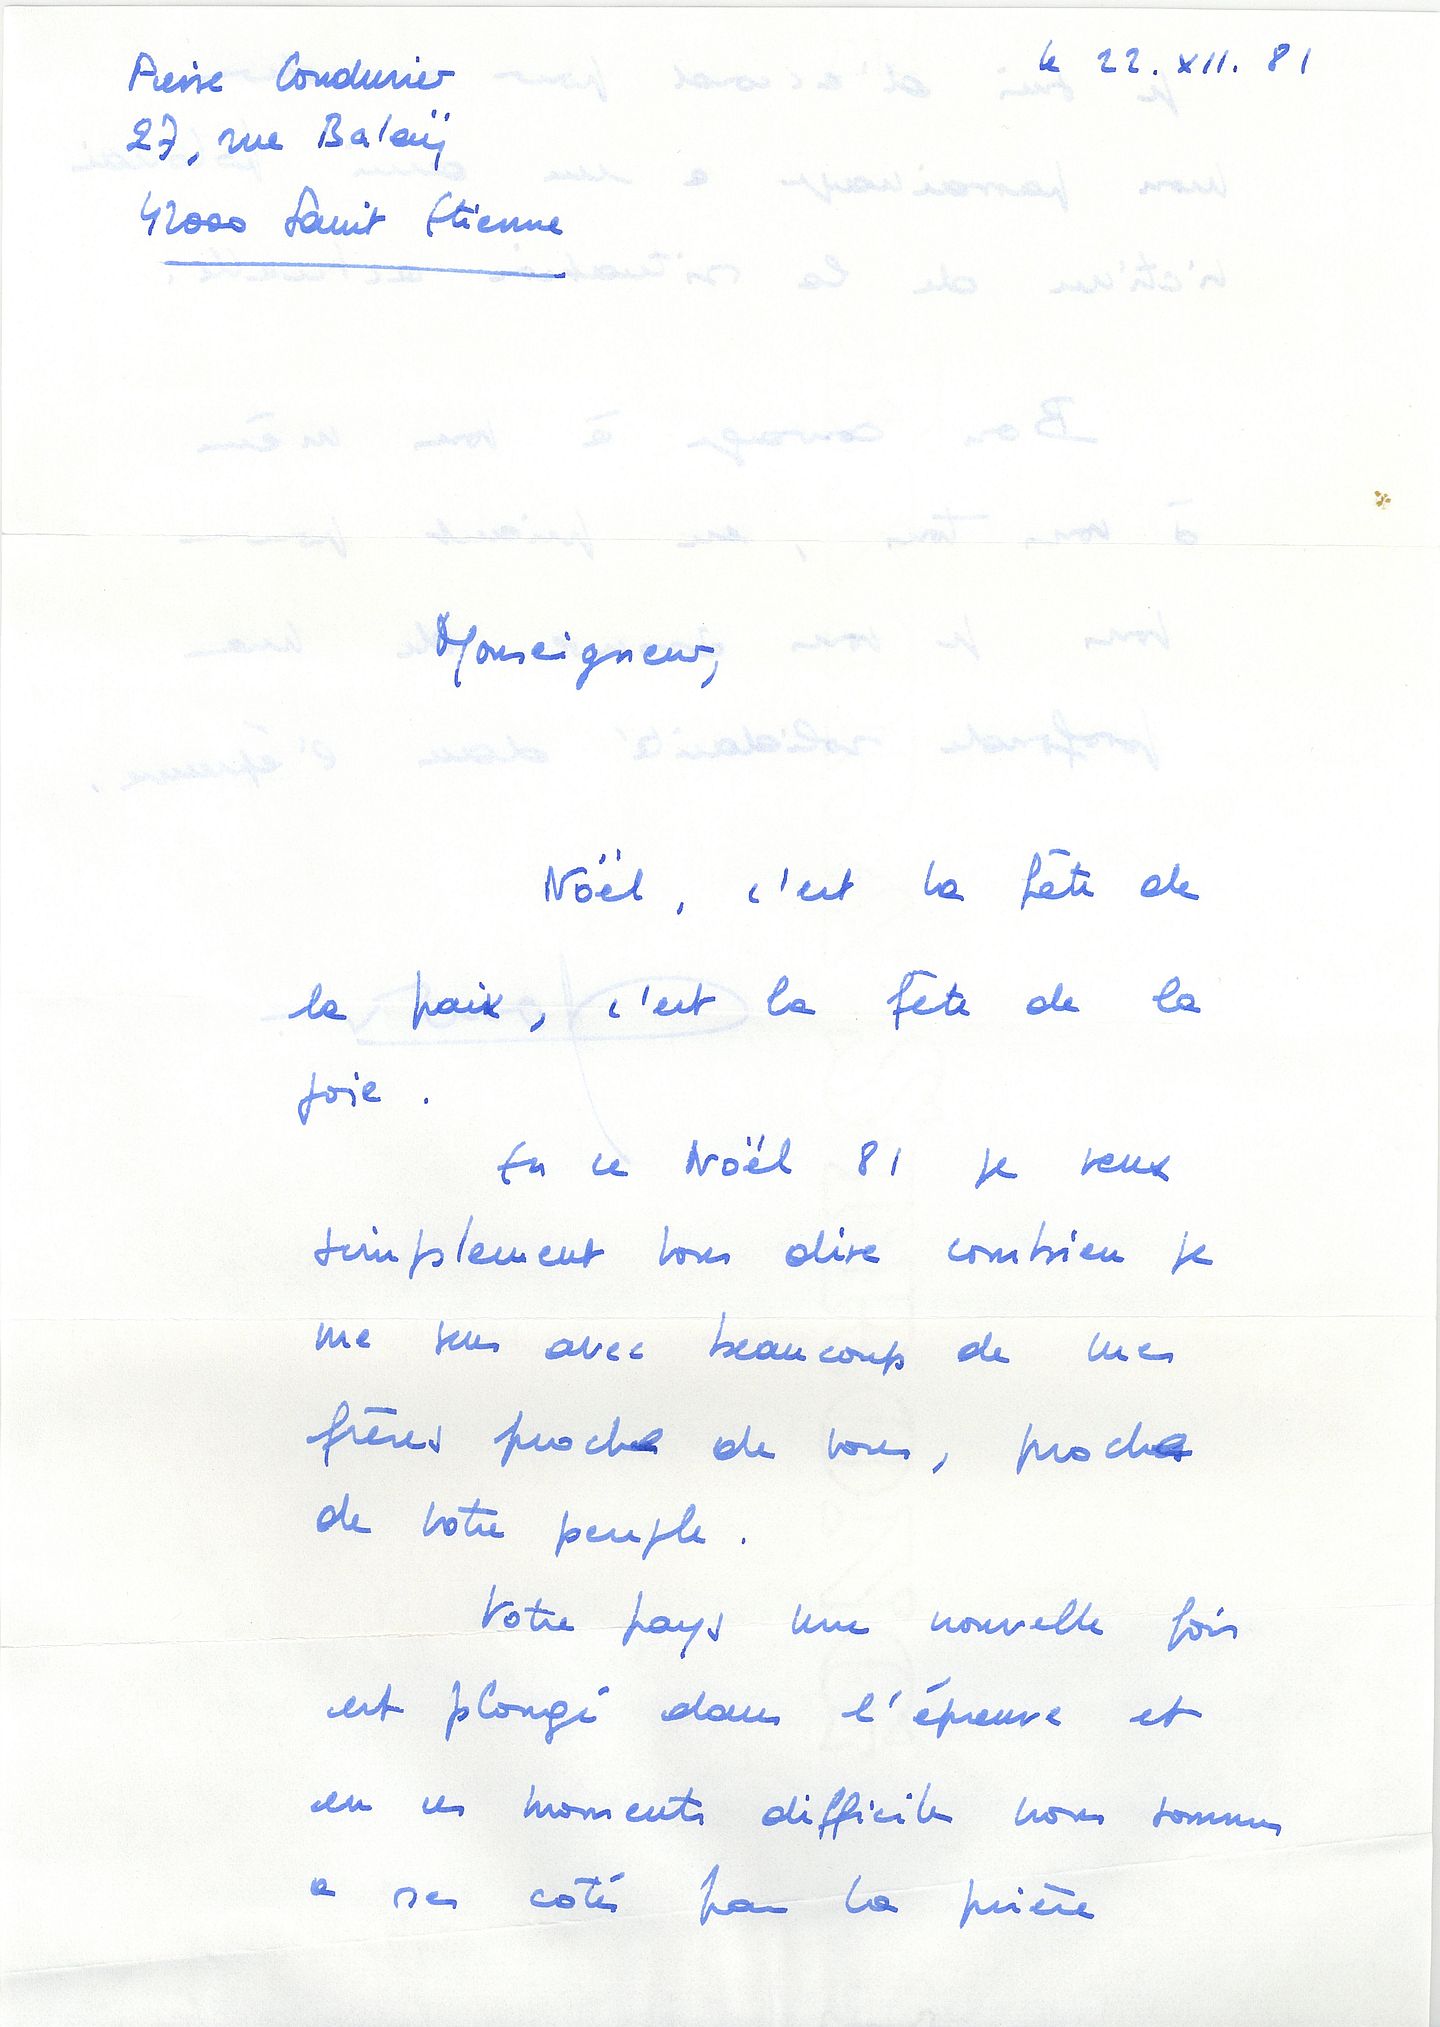 Pierre Condurier
27, rue Balaÿ
42000 Saint Etienne
le 22. XII. 81
Monseigneur,
Noël, c'est la fête de
la paix, c'est la fête de la
joie.
En ce Noël 81 je veux
simplement vous dire combien je
me sens avec beaucoup de mes
frères proche de vous, proche
de votre peuple.
Votre pays une nouvelle fois
est plongé dans l'épreuve et
en ces moments difficile nous sommes
a ses cotés par la prière